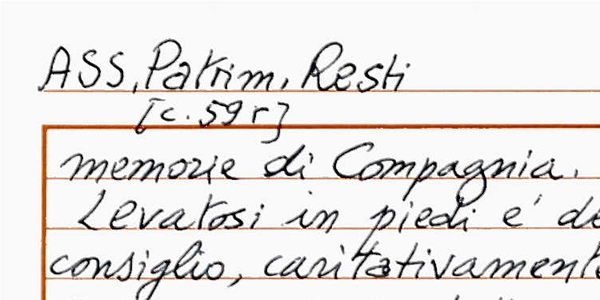 ASS, Patrim, Resti
[c. 59 r]
memorie di Compagnia.
Levatosi in piedi e' de
consiglio, caritativamente